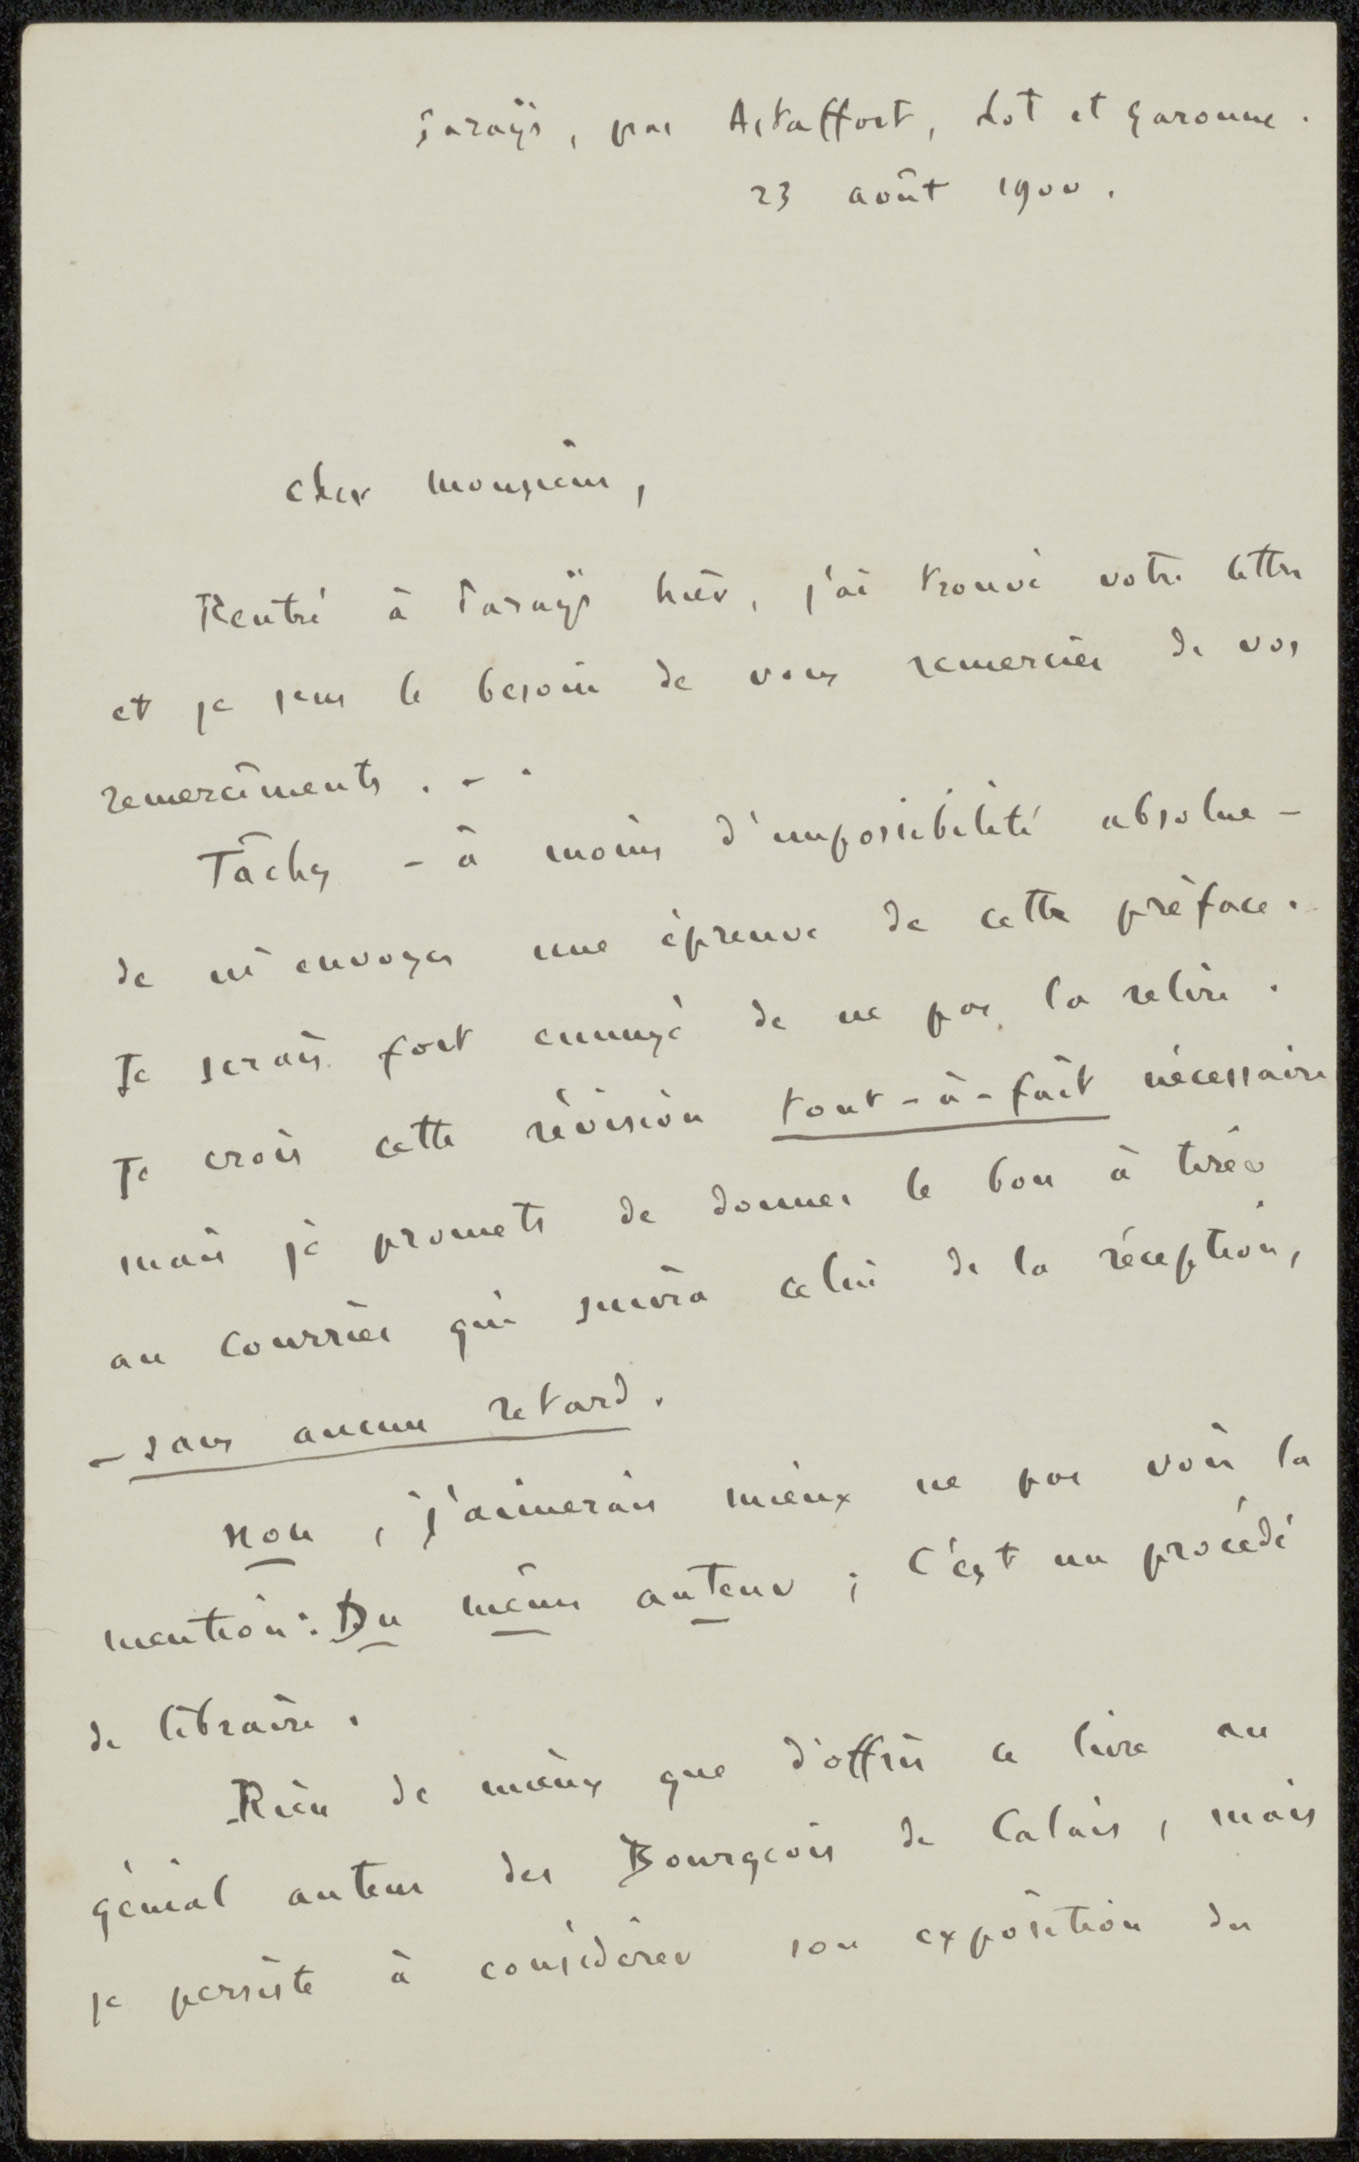 Saraÿs, par Astaffort, Lot et Garonne.
23 août 1900.
Cher Monsieur,
Rentré à Saraÿs hier, j'ai trouvé votre lettre
et je sens le besoin de vous remercier de vos
remerciments . - .
Tâchez - à moins d'impossibilité absolue -
de m'envoyer une épreuve de cette préface.
Je serais fort ennuyé de ne pas la relire.
Je crois cette révision tout-à-fait nécessaire
mais je promets de donner le bon à tirer
au courrier qui suivra celui de la réception,
- sans aucun retard.
Non, j'aimerais mieux ne pas voir la
mention: Du même auteur; c'est un procédé
de libraire.
Rien de mieux que d'offrir ce livre au
génial auteur des Bourgeois de Calais, mais
je persiste à considérer son exposition du